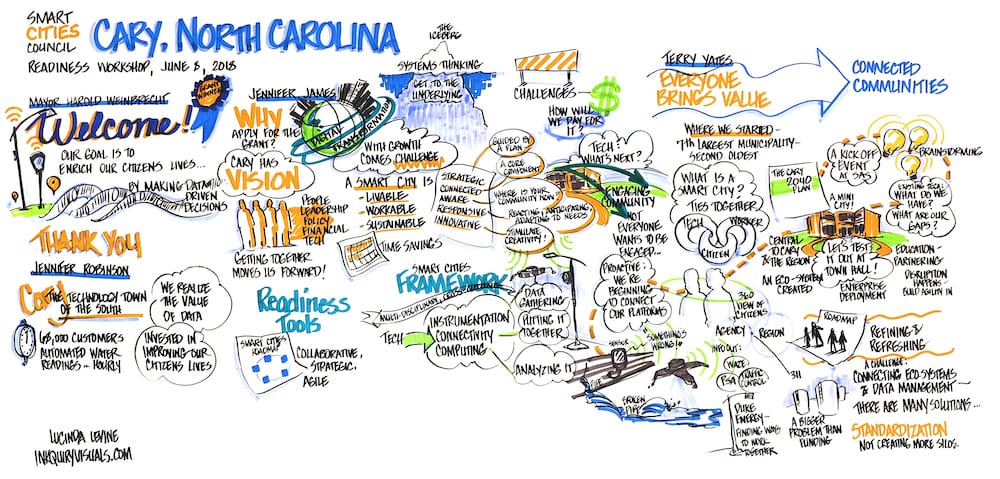 SMART
CITIES
COUNCIL
CARY, NORTH CAROLINA
READINESS WORKSHOP, JUNE 5, 2018
MAYOR HAROLD WEINBRECHT
GRANT
WINNER
Welcome!
OUR GOAL IS TO
ENRICH OUR CITIZENS LIVES...
BY MAKING DATA
DRIVEN
DECISIONS
THANK YOU
JENNIFER ROBINSON
Cary
THE TECHNOLOGY TOWN
OF THE SOUTH
65,000 CUSTOMERS
AUTOMATED WATER
READINGS - HOURLY
WE REALIZE
THE VALUE
OF DATA
INVESTED IN
IMPROVING OUR
CITIZENS LIVES
LUCINDA LEVINE
INKQUIRYVISUALS.COM
JENNIFER JAMES
WHY
APPLY FOR THE
GRANT?
CARY HAS
VISION
DIGITAL
TRANSFORMATION
PEOPLE
LEADERSHIP
POLICY
FINANCIAL
TECH
GETTING TOGETHER
MOVES US FORWARD!
WITH GROWTH
COMES CHALLENGE
A SMART CITY IS
LIVABLE
WORKABLE
SUSTAINABLE
TIME SAVINGS
STRATEGIC
CONNECTED
AWARE
RESPONSIVE
INNOVATIVE
THE
ICEBERG
SYSTEMS THINKING
GET TO THE
UNDERLYING
CHALLENGES
$
HOW WILL
WE PAY FOR
IT?
GUIDED BY
A PLAN
A CORE
COMPONENT
WHERE IS YOUR
COMMUNITY NOW?
REACTING, ANTICIPATING
ADAPTING TO NEEDS
STIMULATE
CREATIVITY!
TECH?
WHAT'S NEXT?
ENGAGING
COMMUNITY
NOT
EVERYONE
WANTS TO BE
ENGAGED...
PROACTIVE:
WE'RE
BEGINNING
TO CONNECT
OUR PLATFORMS
Readiness
Tools
SMART CITIES
ROADMAP
COLLABORATIVE,
STRATEGIC,
AGILE
SMART CITIES
FRAMEWORK
MULTI-DISCIPLINARY, CROSS
TECH
INSTRUMENTATION
CONNECTIVITY
COMPUTING
DATA
GATHERING
PUTTING IT
TOGETHER
ANALYZING IT
SENSOR
SOMETHING'S
WRONG!
PIPE
BROKEN
PIPE
TERRY YATES
EVERYONE
BRINGS VALUE
CONNECTED
COMMUNITIES
WHERE WE STARTED -
7TH LARGEST MUNICIPALITY -
SECOND OLDEST
WHAT IS A
SMART CITY?
TIES TOGETHER
TECH
WORKER
CITIZEN
THE CARY
2040
PLAN
A KICK OFF
EVENT
AT SAS
BRAINSTORMING
EXISTING TECH:
WHAT DO WE
HAVE?
WHAT ARE OUR
GAPS?
A MINI
CITY!
CENTRAL
TO CARY
& THE REGION
AN ECO-SYSTEM
CREATED
LET'S TEST
IT OUT AT
TOWN HALL!
ENTERPRISE
DEPLOYMENT
EDUCATION -
PARTNERING
DISRUPTION
HAPPENS
BUILD AGILITY IN
360
VIEW OF
CITIZENS
AGENCY
REGION
INFO OUT:
WAZE
PSA
TRAFFIC
CONTROL
311
DUKE
ENERGY -
FINDING WAYS
TO WORK
TOGETHER
ROADMAP
REFINING &
REFRESHING
A CHALLENGE:
CONNECTING ECO SYSTEMS
& DATA MANAGEMENT -
THERE ARE MANY SOLUTIONS...
A BIGGER
PROBLEM THAN
FUNDING
STANDARDIZATION
NOT CREATING MORE SILOS.